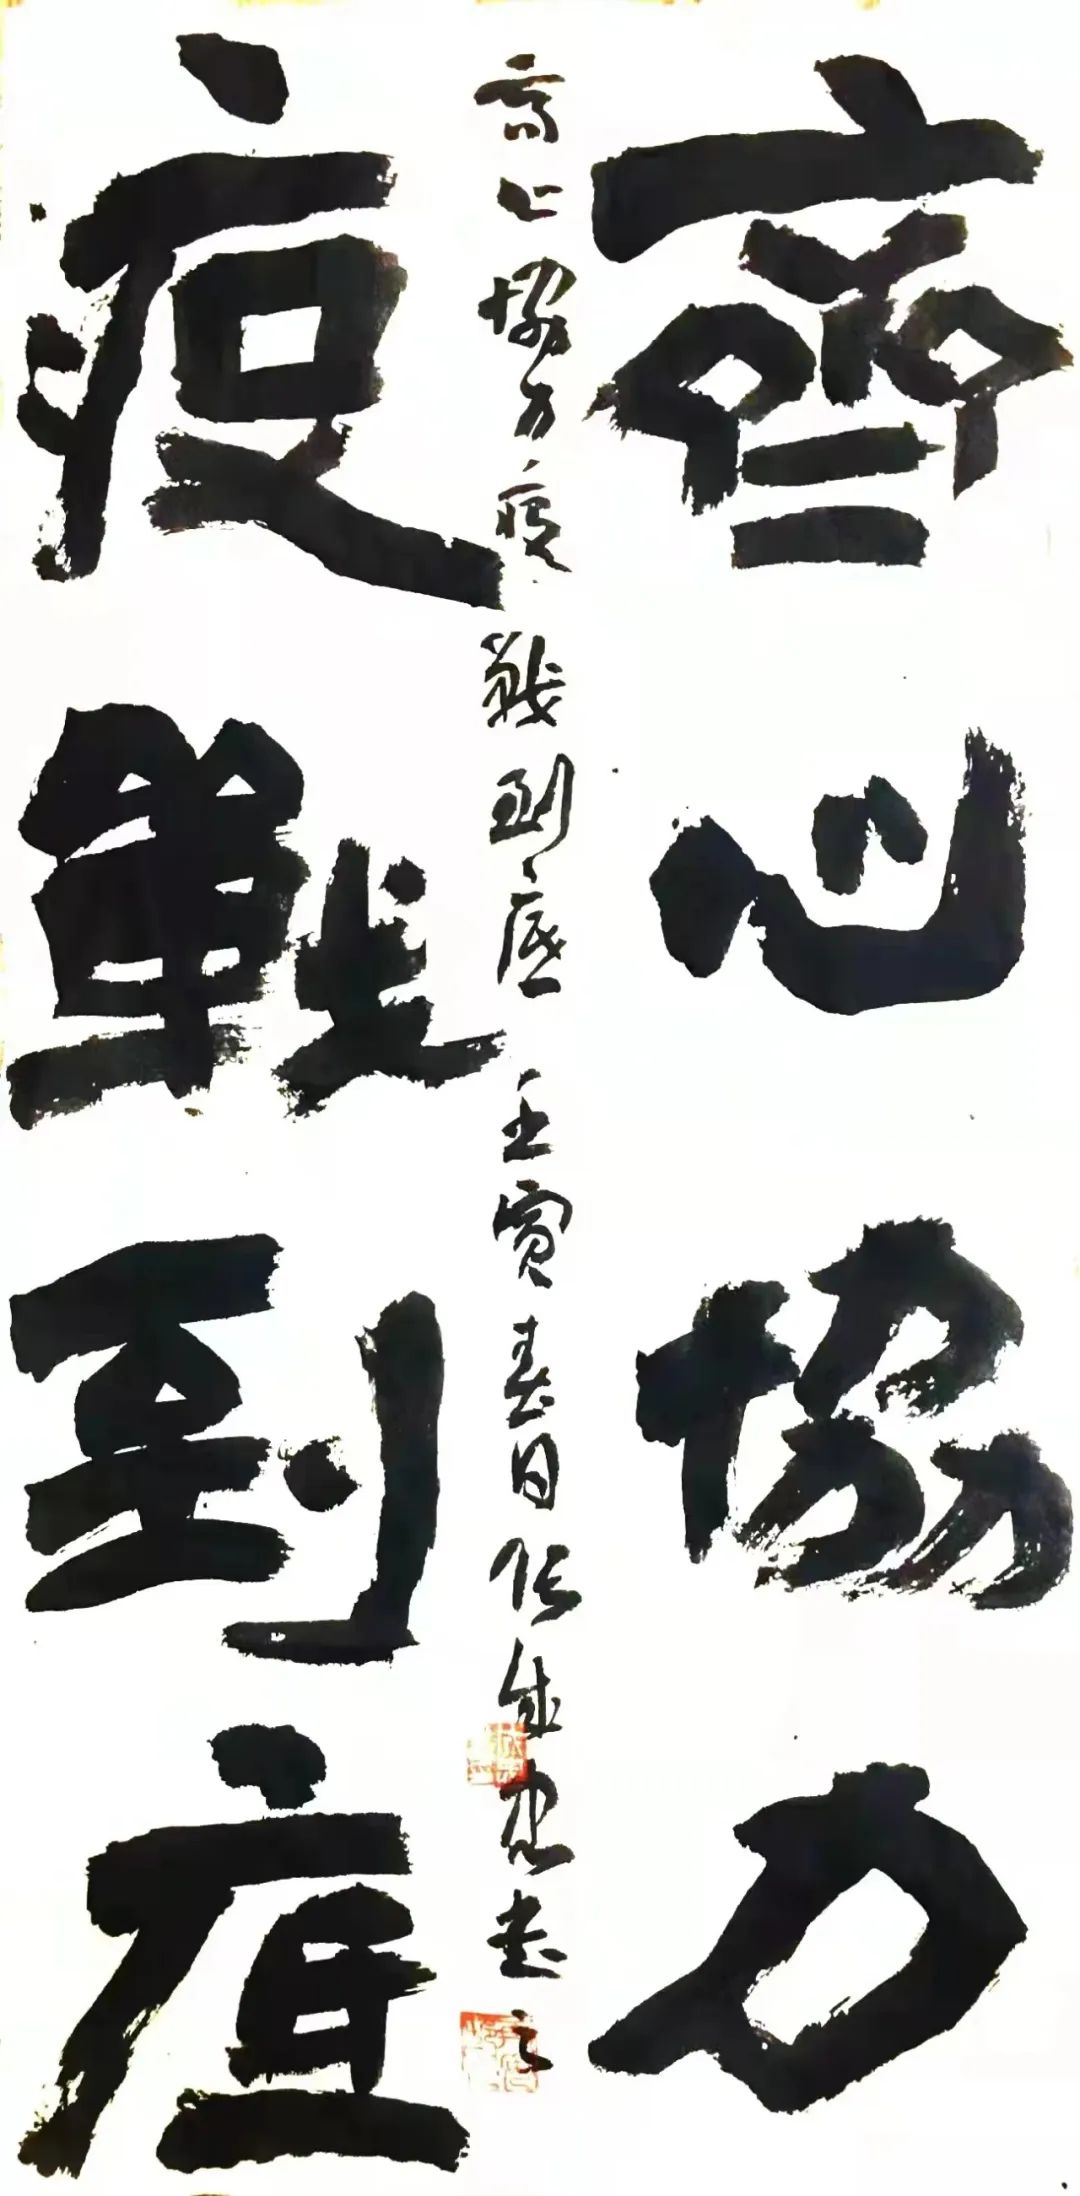 齊心協力
疫戰到底
齊心協力疫戰到底 壬寅春日 成 書之